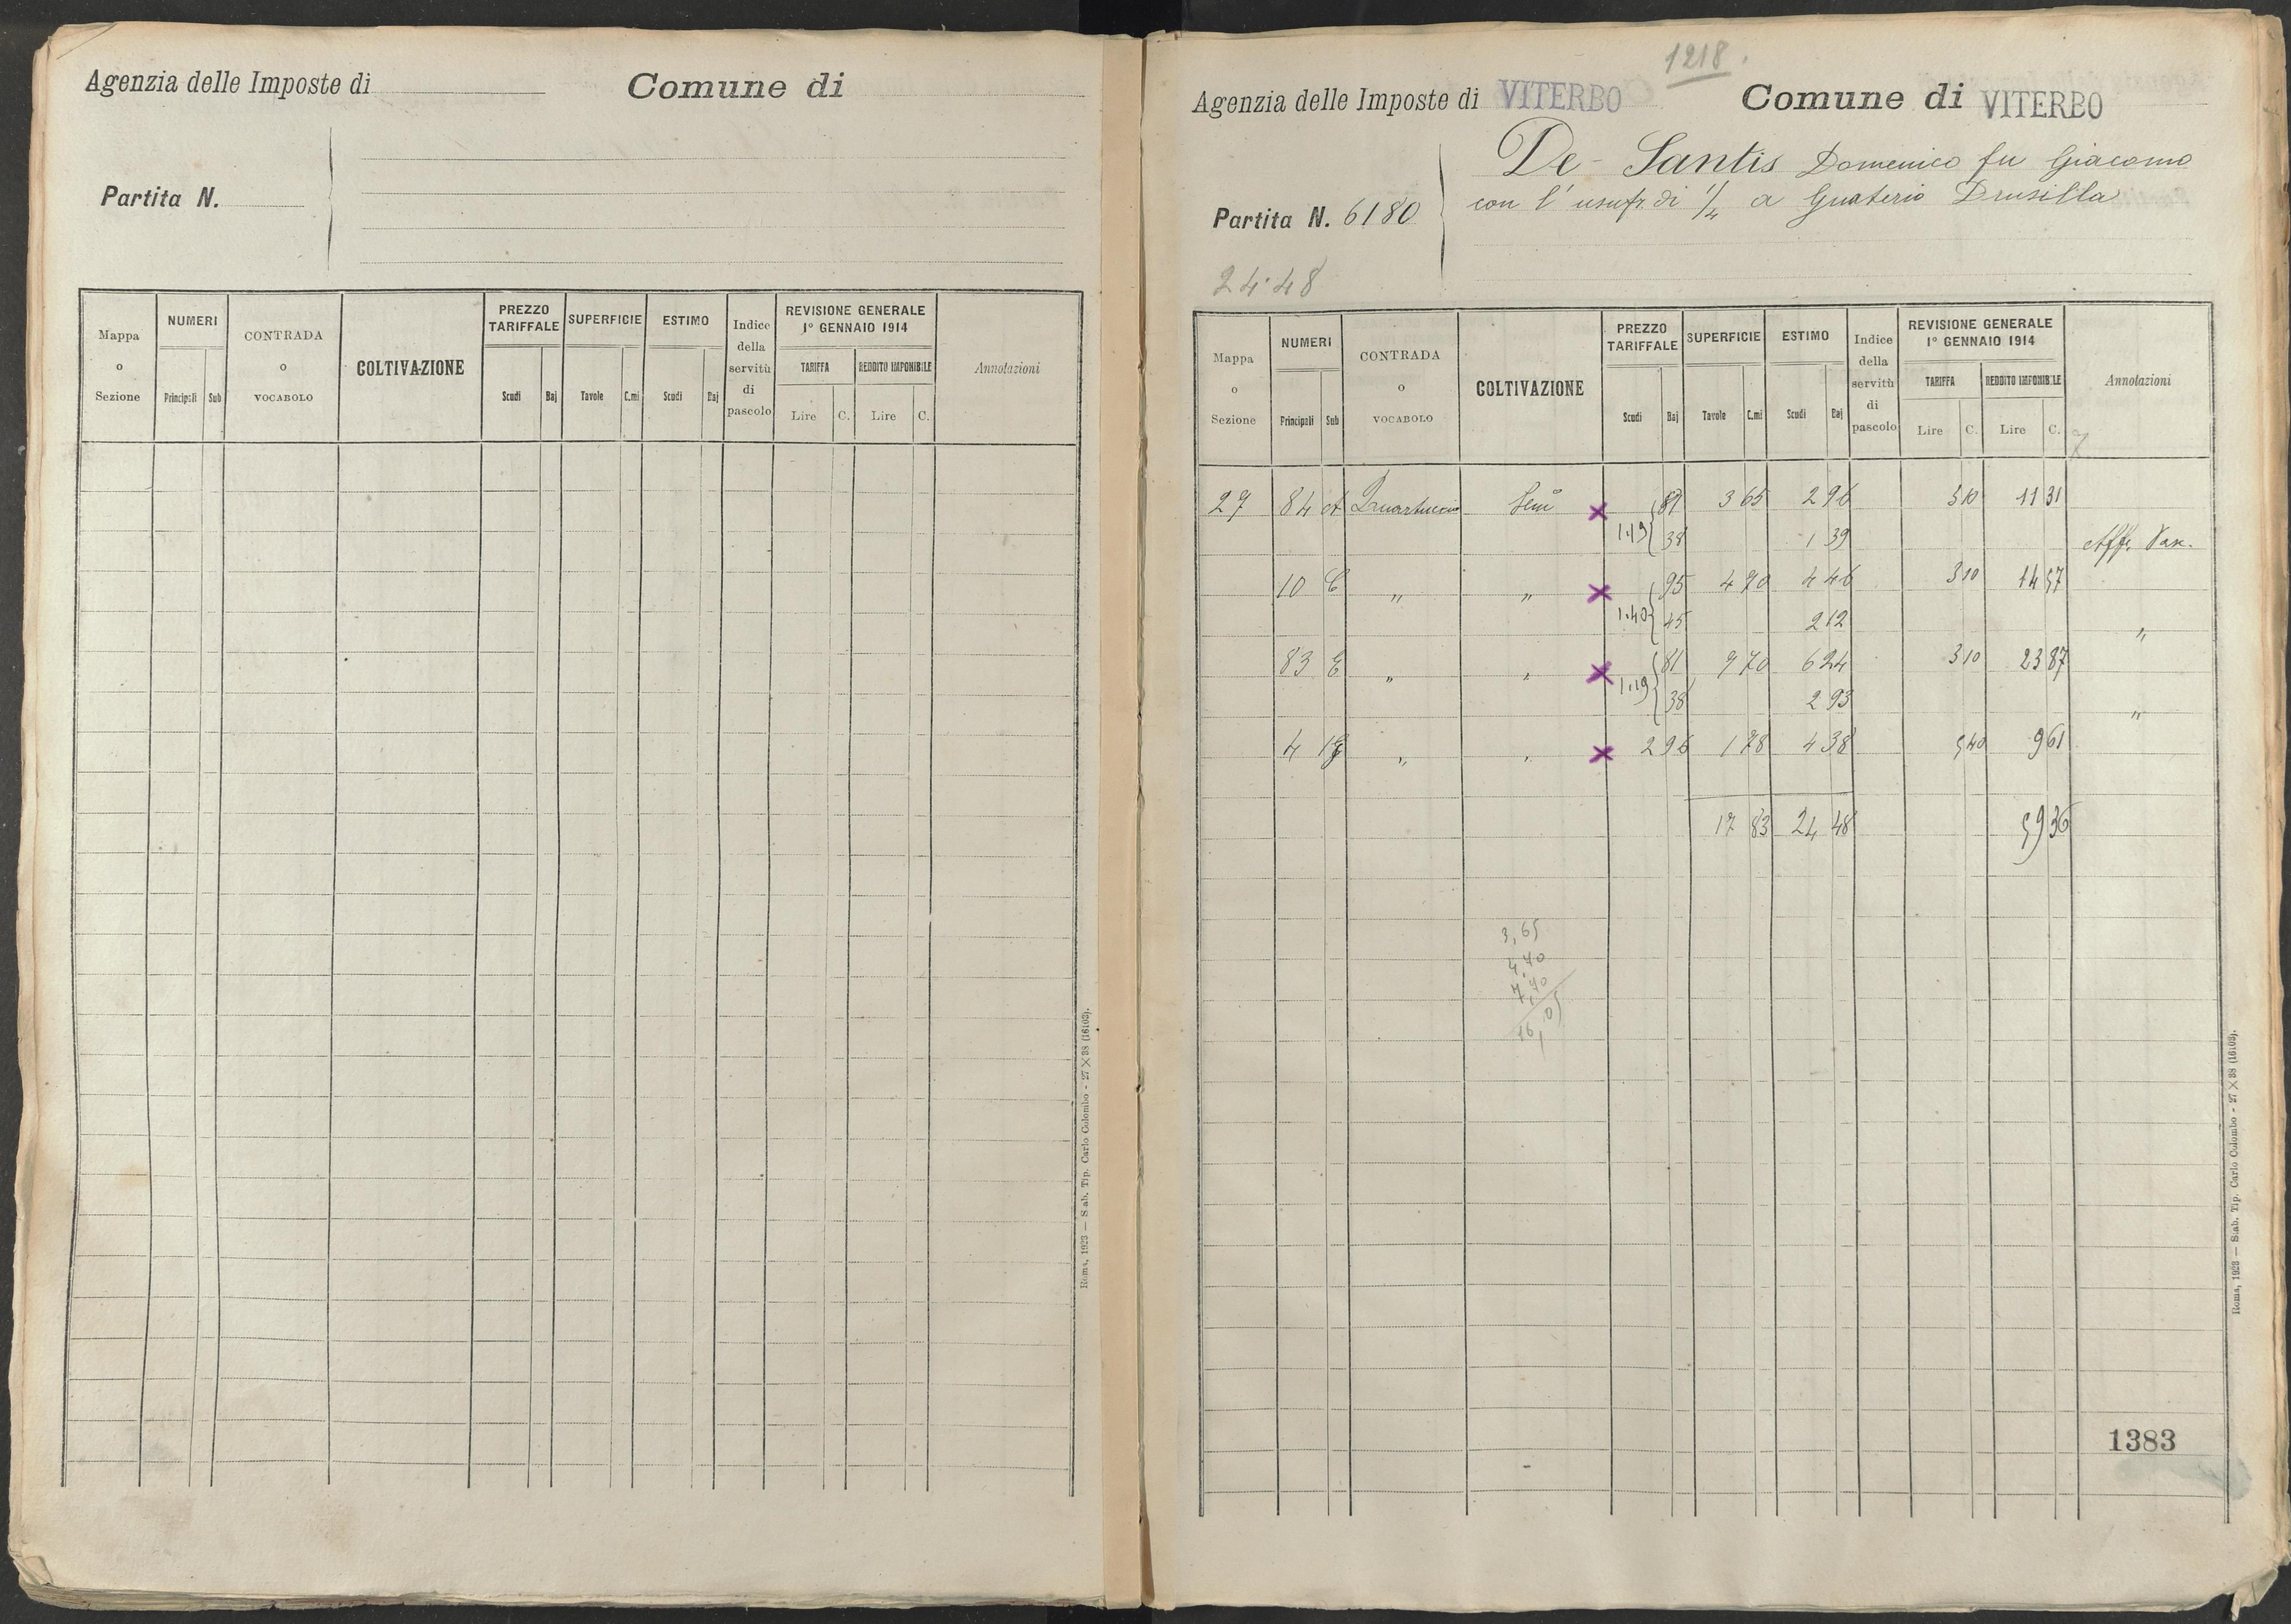 Agenzia delle Imposte di
Comune di
Partita N.
Mappa o Sezione
NUMERI
Principali Sub
CONTRADA o VOCABOLO
COLTIVAZIONE
PREZZO TARIFFALE
Scudi Baj
SUPERFICIE
Tavole C.mi
ESTIMO
Scudi Baj
Indice della servitù di pascolo
REVISIONE GENERALE 1° GENNAIO 1914
TARIFFA
Lire C.
REDDITO IMPONIBILE
Lire C.
Annotazioni
Roma, 1923 — Stab. Tip. Carlo Colombo - 27 X 38 (16103).
1218.
Agenzia delle Imposte di VITERBO
Comune di VITERBO
De Santis Domenico fu Giacomo
con l'usufr. di 1/4 a Guaterio Drusilla
Partita N. 6180
24.48
Mappa o Sezione
NUMERI
Principali Sub
CONTRADA o VOCABOLO
COLTIVAZIONE
PREZZO TARIFFALE
Scudi Baj
SUPERFICIE
Tavole C.mi
ESTIMO
Scudi Baj
Indice della servitù di pascolo
REVISIONE GENERALE 1° GENNAIO 1914
TARIFFA
Lire C.
REDDITO IMPONIBILE
Lire C.
Annotazioni
27 84 A Semo x 81 3 65 2 96 3 10 11 31
1.19 38 1 39 Aff.
10 C " " x 95 4 70 4 46 3 10 14 57
1.40 45 2 12 "
83 E " " x 81 7 70 6 24 3 10 23 87
1.19 38 2 93 "
4 " " x 2 96 1 78 4 38 5 40 9 61
17 83 24 48 59 36
3,65
4,70
7,70
16,05
1383
Roma, 1923 — Stab. Tip. Carlo Colombo - 27 X 38 (16103).